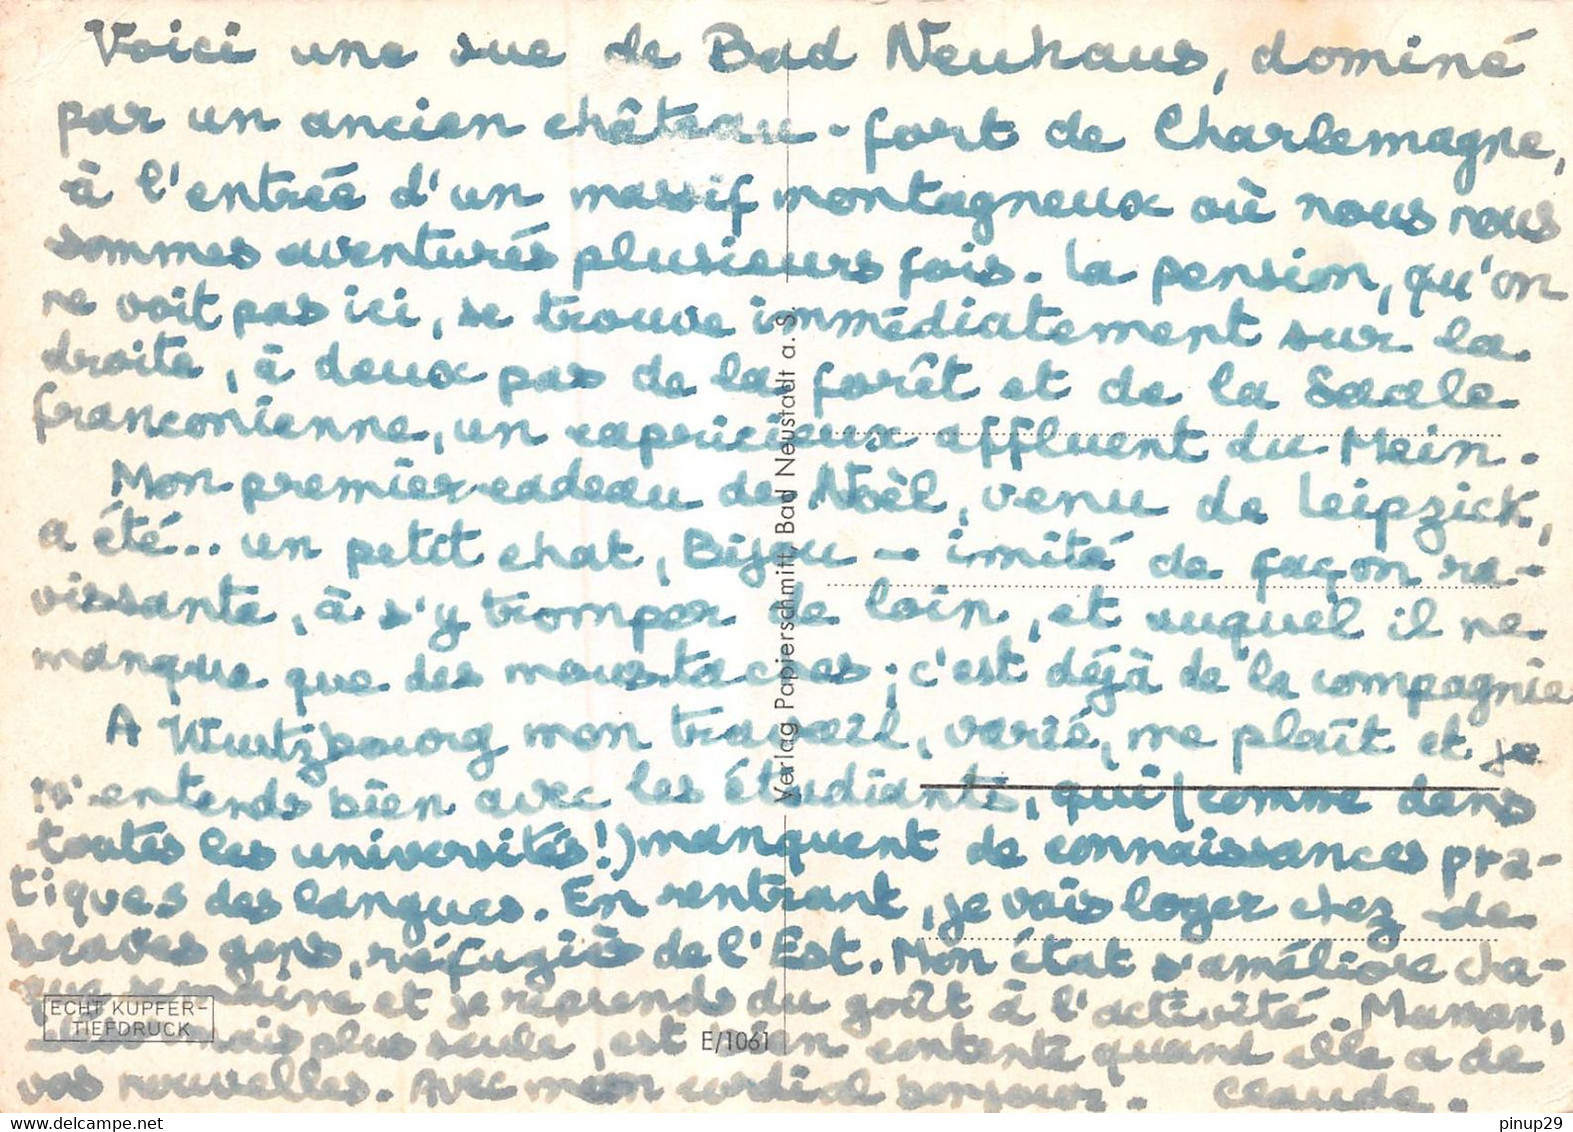 Voici une rue de Bad Neuhaus, dominé
par un ancien château-fort de Charlemagne,
à l'entrée d'un massif montagneux où nous nous
sommes aventurés plusieurs fois. La pension, qu'on
ne voit pas ici, se trouve immédiatement sur la
droite, à deux pas de la forêt et de la Saale
franconienne, un capricieux affluent du Mein.
Mon premier cadeau de Noèl, venu de Leipzick,
a été.. un petit chat, Bijou - imité de façon ra-
vissante, à s'y tromper de loin, et auquel il ne
manque que des moustaches; c'est déjà de la compagnie
A Wurtzbourg mon travail, varié, me plaît et je
m'entends bien avec les étudiants, qui (comme dans
toutes les universités!) manquent de connaissances pra-
tiques des langues. En rentrant, je vais loger chez de
braves gens, réfugiés de l'Est. Mon état s'améliore cha-
que semaine et je reprends du goût à l'activité. Maman,
mais plus seule, est bien contente quand elle a de
vos nouvelles. Avec mon cordial bonjour. Claude.
Verlag Papierschmitt, Bad Neustadt a. S.
ECHT KUPFER-
TIEFDRUCK
E/1061
pinup29